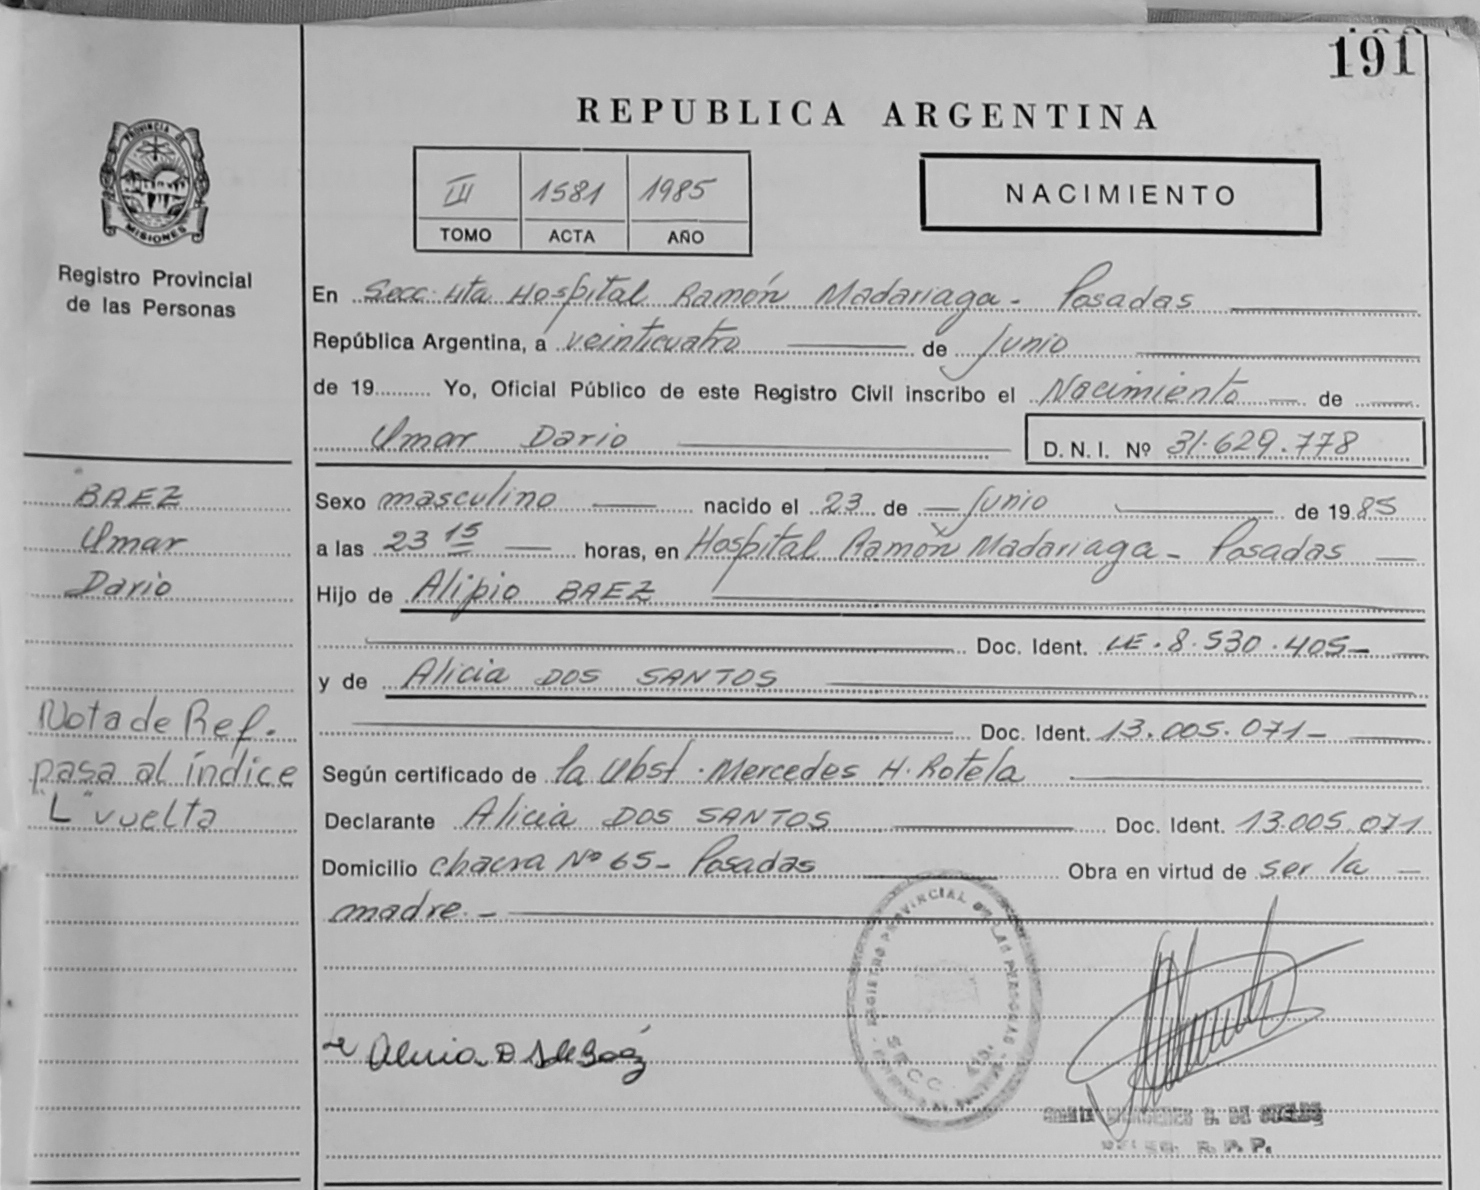 191
REPUBLICA ARGENTINA
III 1581 1985
TOMO ACTA AÑO
NACIMIENTO
PROVINCIA DE
MISIONES
Registro Provincial
de las Personas
En Secc. 4ta Hospital Ramón Madariaga - Posadas
República Argentina, a veinticuatro de Junio
de 19 Yo, Oficial Público de este Registro Civil inscribo el Nacimiento de
Omar Dario D. N. I. Nº 31.629.778
BAEZ
Omar
Dario
Sexo masculino nacido el 23 de Junio de 1985
a las 23 15 horas, en Hospital Ramón Madariaga - Posadas
Hijo de Alipio BAEZ
Doc. Ident. LE. 8.530.405-
y de Alicia DOS SANTOS
Doc. Ident. 13.005.071-
Nota de Ref.
pasa al índice
"L" vuelta
Según certificado de la Obst. Mercedes H. Rotela
Declarante Alicia DOS SANTOS Doc. Ident. 13.005.071
Domicilio chacra Nº 65- Posadas Obra en virtud de ser la
madre.-
REGISTRO PROVINCIAL DE LAS PERSONAS
SECC. 4ta.
Alicia D S de Baez
R. P. P.